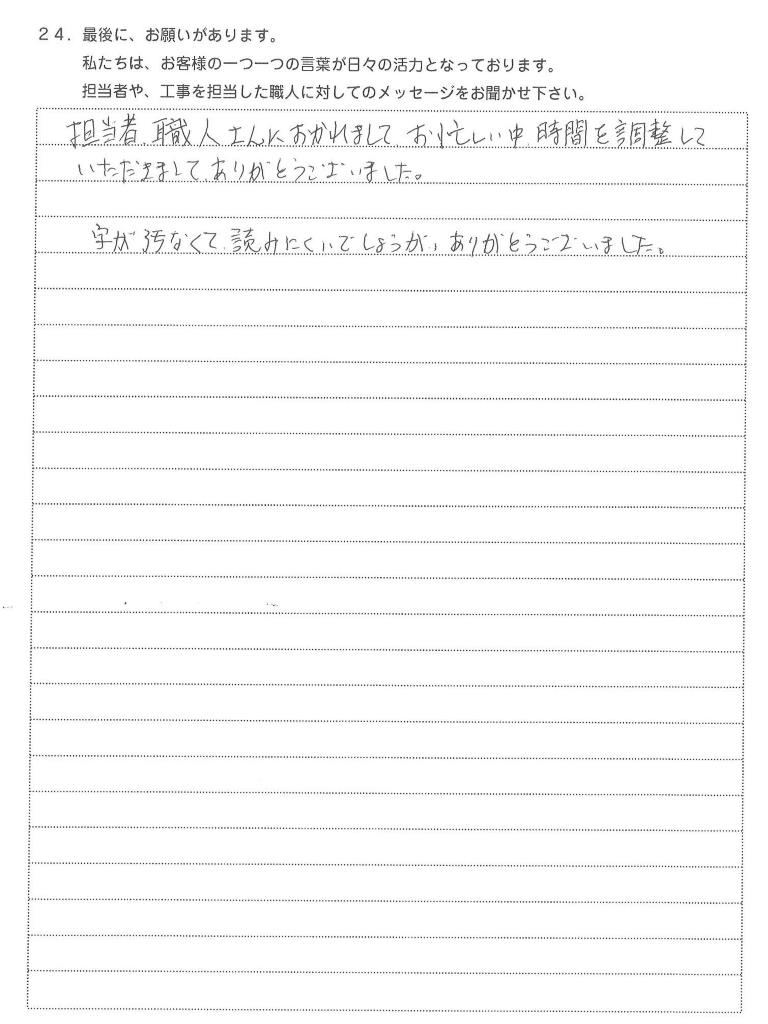 24. 最後に、お願いがあります。
私たちは、お客様の一つ一つの言葉が日々の活力となっております。
担当者や、工事を担当した職人に対してのメッセージをお聞かせ下さい。
担当者、職人さんにおかれまして、お忙しい中、時間を調整して
いただきまして、ありがとうございました。
字が汚なくて、読みにくいでしょうが、ありがとうございました。